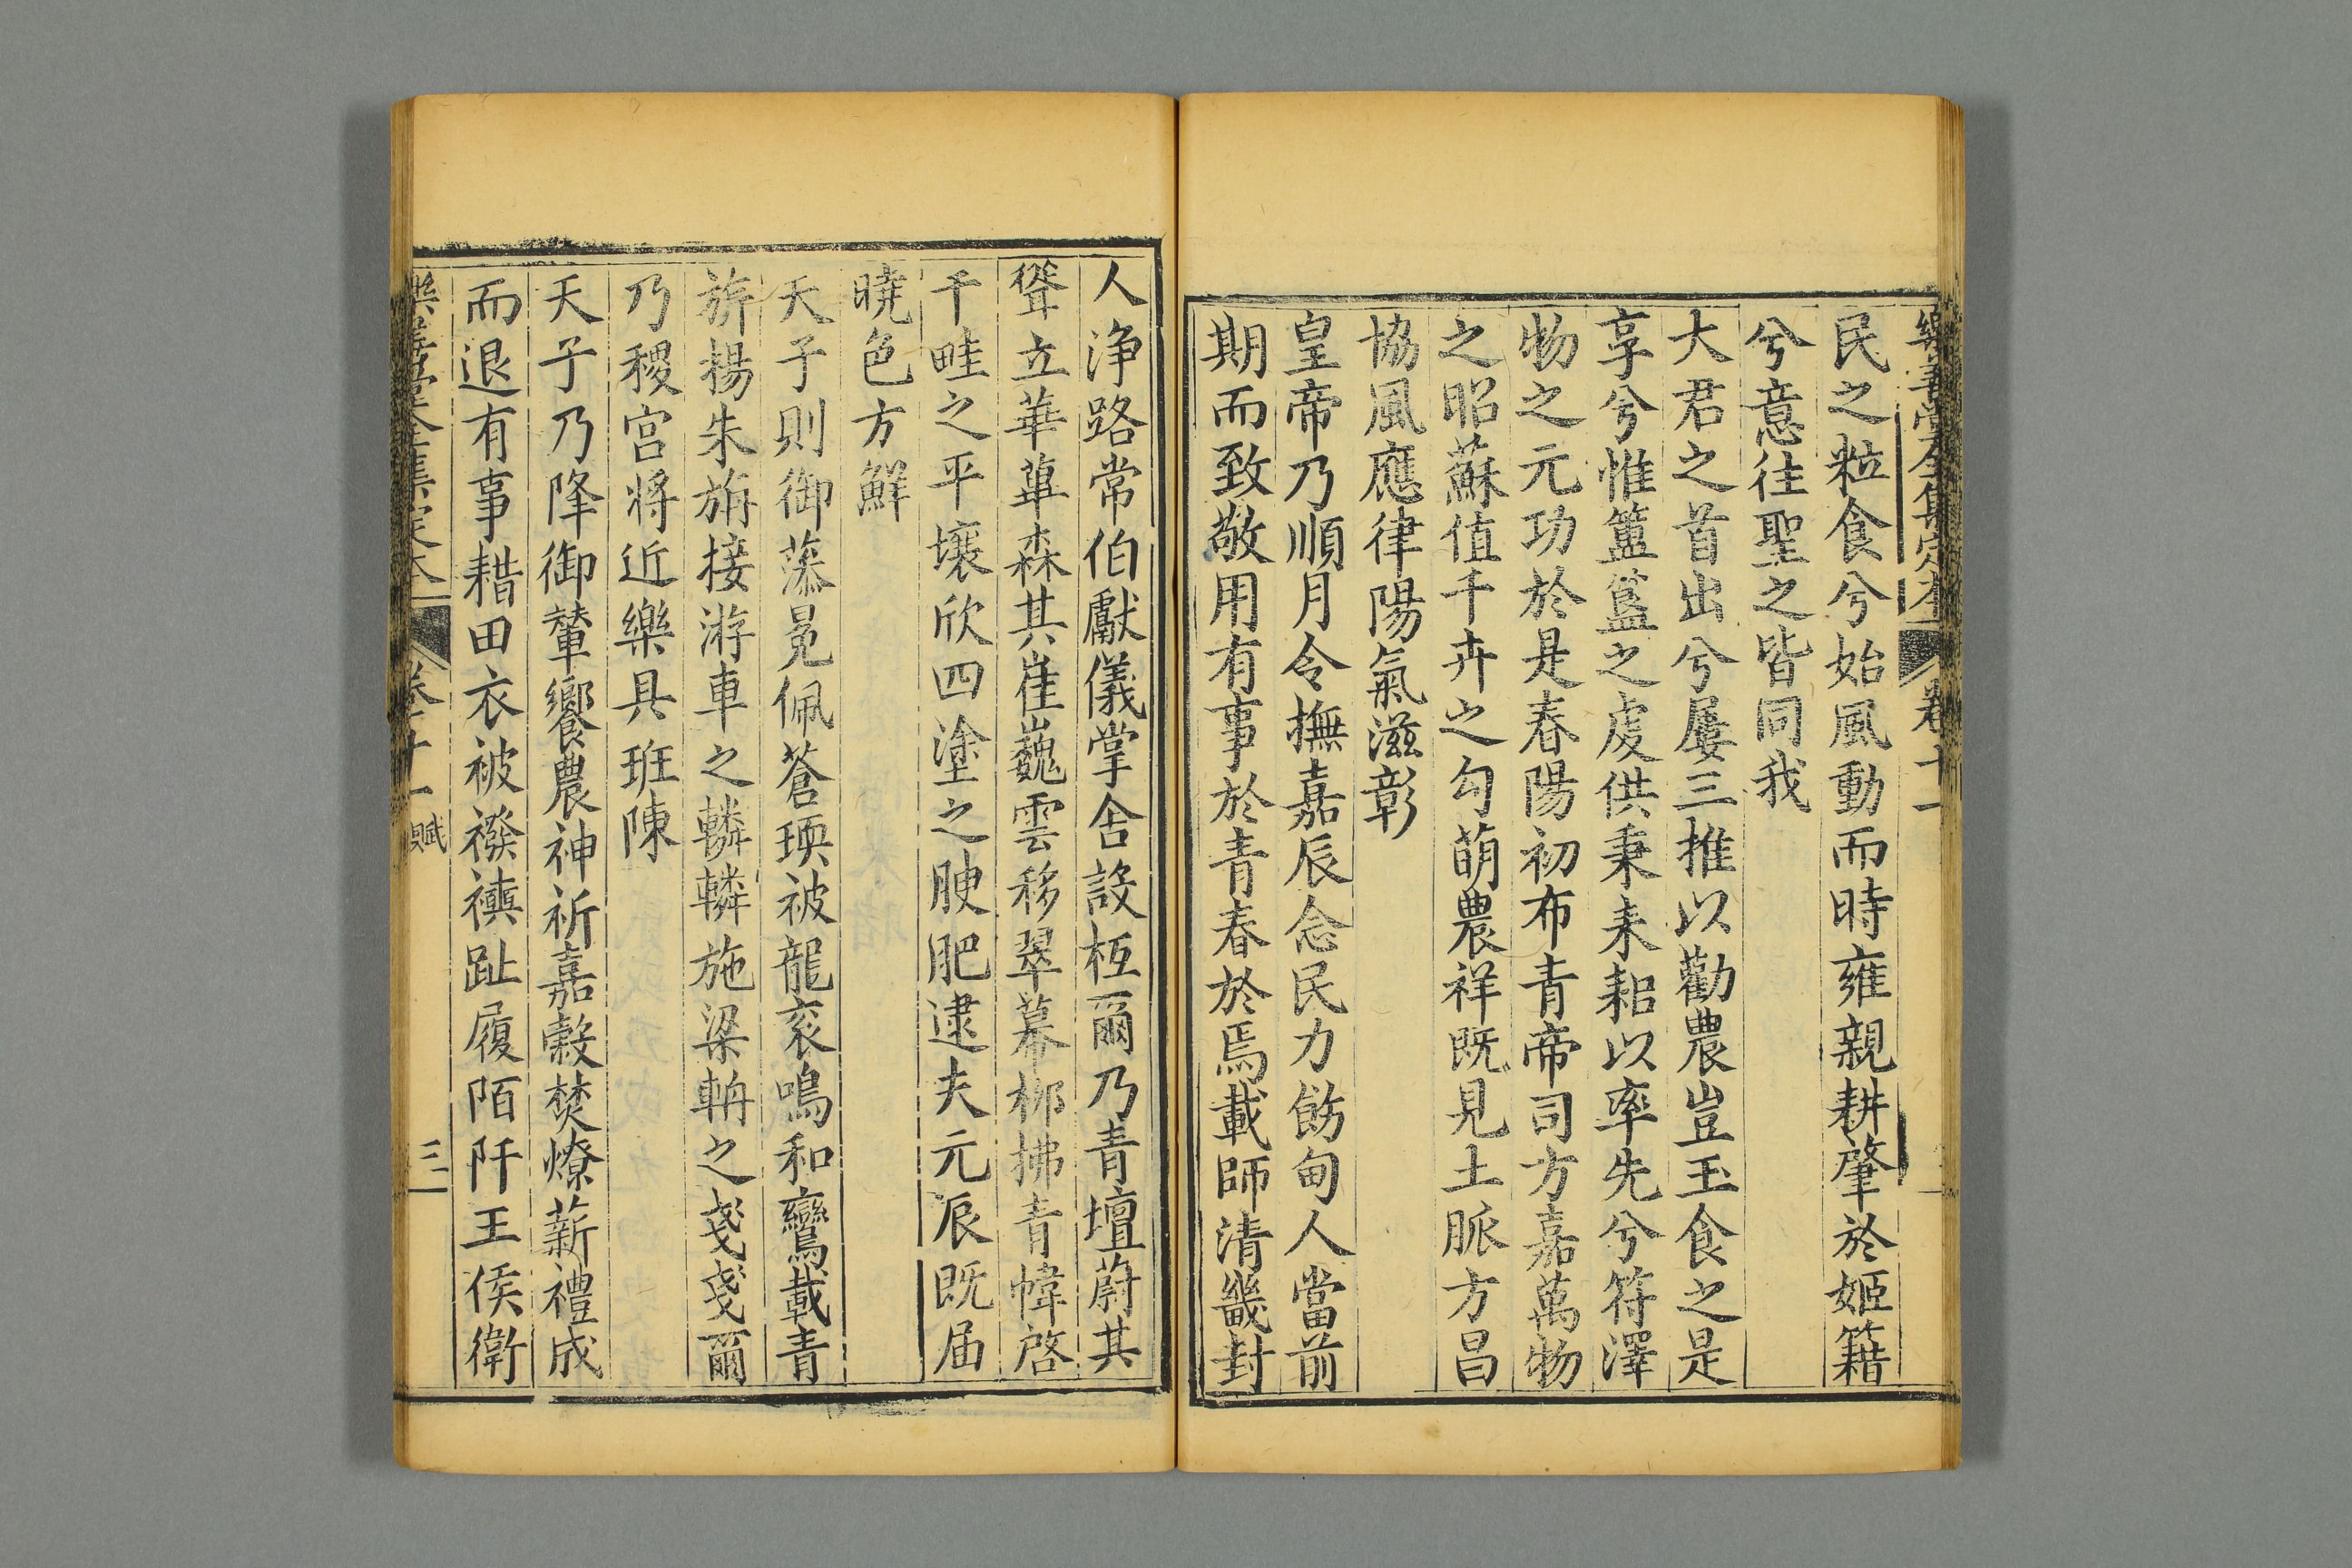 樂善堂全集定本 卷十一
民之粒食兮始風動而時雍親耕肇於姬籍
兮意往聖之皆同我
大君之首出兮屢三推以勸農豈玉食之是
享兮惟簠簋之虔供秉耒耜以率先兮符澤
物之元功於是春陽初布青帝司方嘉萬物
之昭蘇值千卉之勾萌農祥既見土脈方昌
協風應律陽氣滋彰
皇帝乃順月令撫嘉辰念民力飭甸人當前
期而致敬用有事於青春於焉載師清畿封
人浄路常伯獻儀掌舍設枑爾乃青壇蔚其
聳立華蕚森其崔巍雲移翠幕栁拂青幃啓
千畦之平壤欣四塗之腴肥逮夫元辰既届
曉色方鮮
天子則御藻冕佩蒼瑛被龍衮鳴和鸞載青
旂楊朱旃接游車之轔轔施梁輈之戔戔爾
乃稷宫將近樂具班陳
天子乃降御輦饗農神祈嘉穀焚燎薪禮成
而退有事耤田衣被襏襫趾履陌阡王侯衛
樂善堂全集定本 卷十一 賦 三